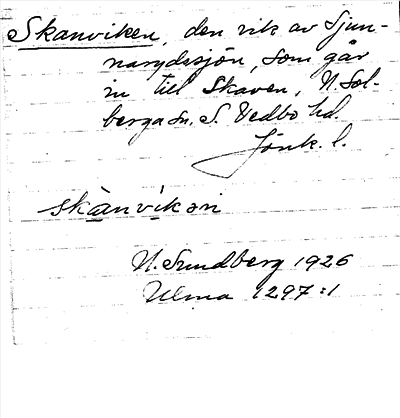 Skanviken, den vik av Sjun-
narydssjön, som går
in till Skaven, N. Sol-
berga sn. S. Vedbo hd.
Jönk. l.
skànvìkən
N. Sundberg 1926
Ulma 1297:1